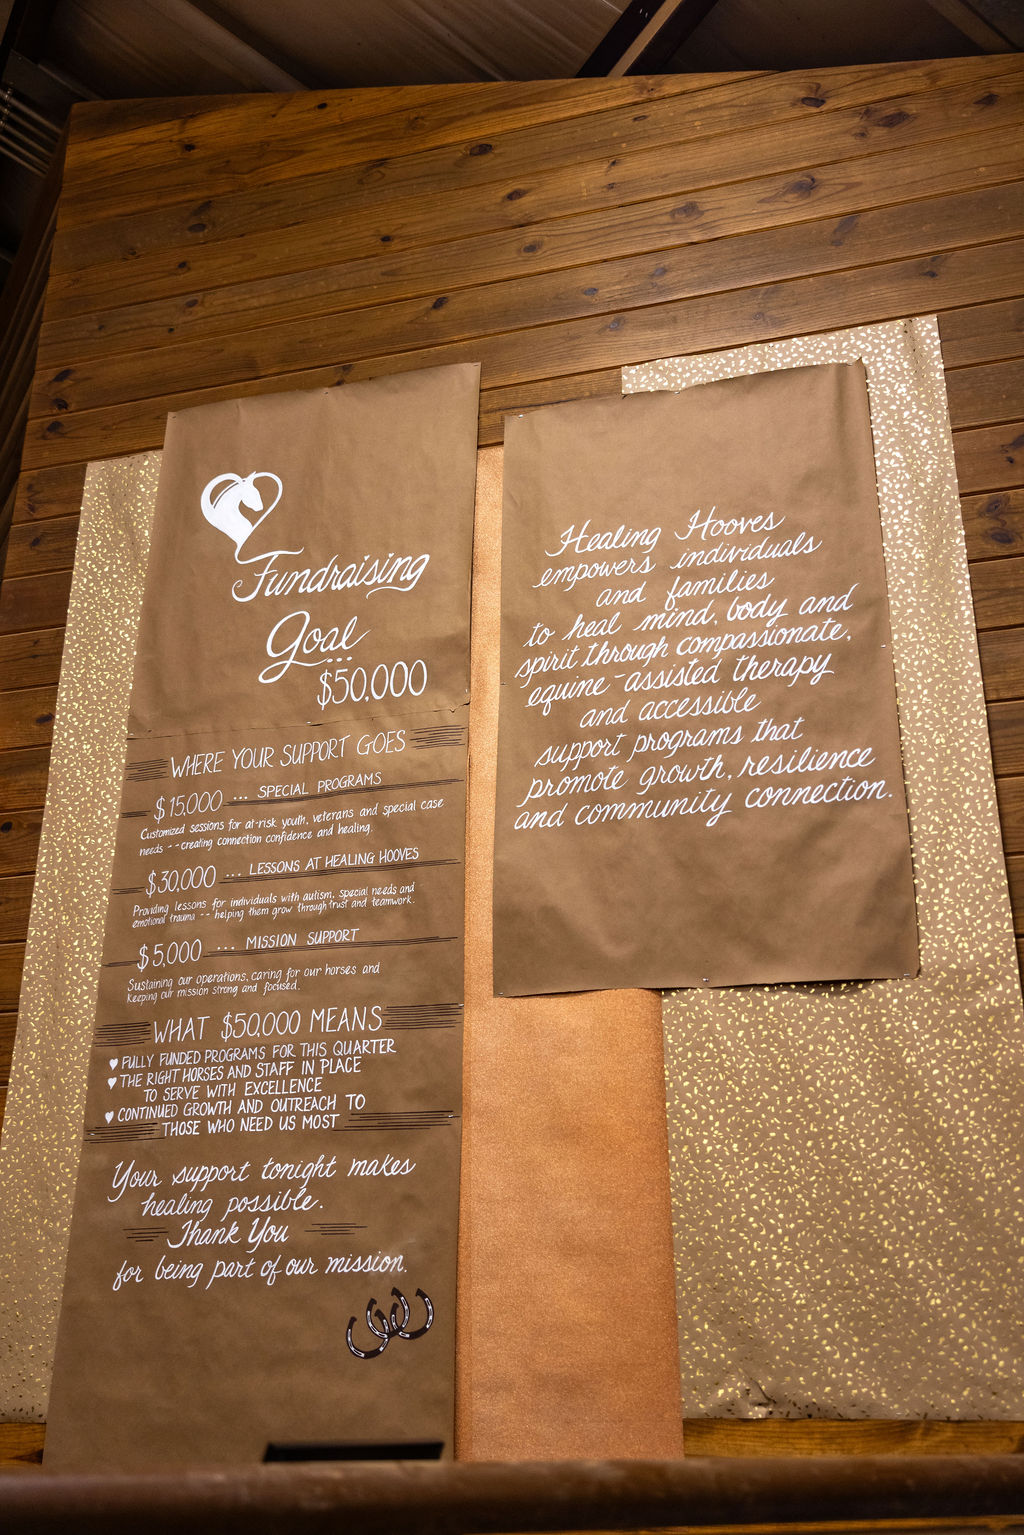 Fundraising
Goal
...
$50,000
WHERE YOUR SUPPORT GOES
$15,000 ... SPECIAL PROGRAMS
Customized sessions for at-risk youth, veterans and special case
needs -- creating connection confidence and healing.
$30,000 ... LESSONS AT HEALING HOOVES
Providing lessons for individuals with autism, special needs and
emotional trauma -- helping them grow through trust and teamwork.
$5,000 ... MISSION SUPPORT
Sustaining our operations, caring for our horses and
keeping our mission strong and focused.
WHAT $50,000 MEANS
♥ FULLY FUNDED PROGRAMS FOR THIS QUARTER
♥ THE RIGHT HORSES AND STAFF IN PLACE
TO SERVE WITH EXCELLENCE
♥ CONTINUED GROWTH AND OUTREACH TO
THOSE WHO NEED US MOST
Your support tonight makes
healing possible.
Thank You
for being part of our mission.
Healing Hooves
empowers individuals
and families
to heal mind, body and
spirit through compassionate,
equine-assisted therapy
and accessible
support programs that
promote growth, resilience
and community connection.